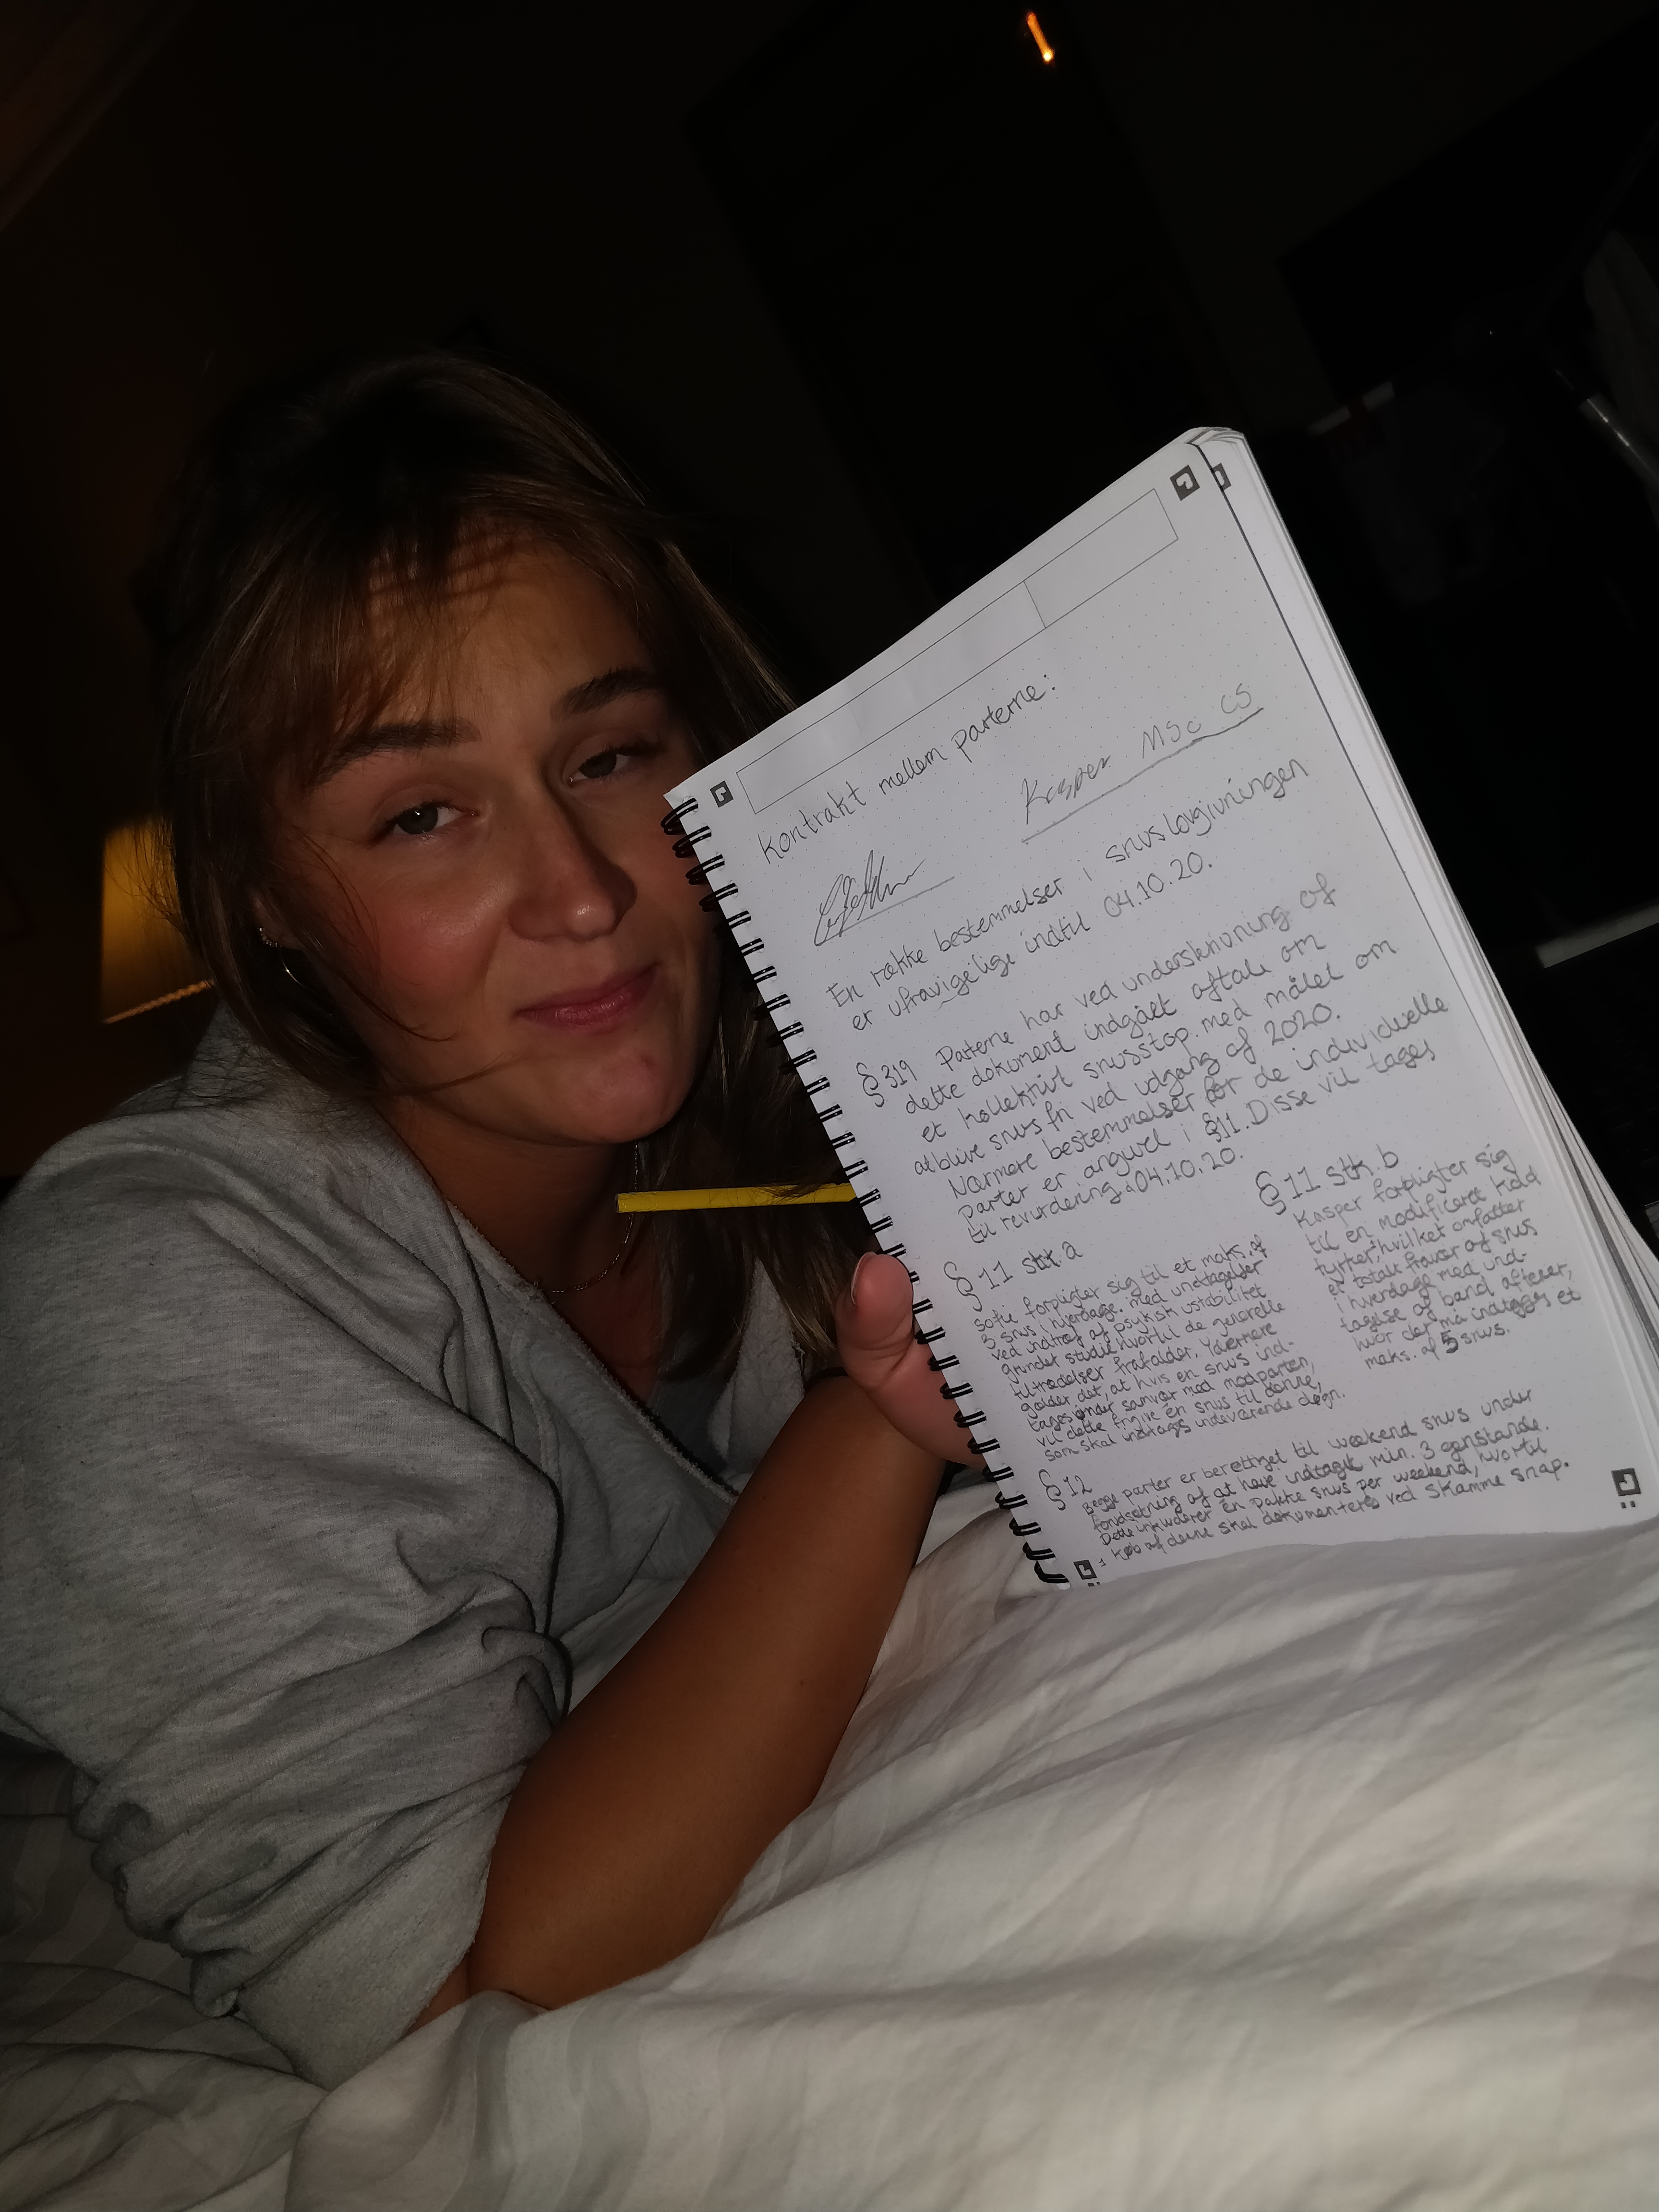 Kontrakt mellem parterne:
Kasper MSc CS
En række bestemmelser i snuslovgivningen
er ufravigelige indtil 04.10.20.
§319 Parterne har ved underskrivning af
dette dokument indgået aftale om
et kollektivt snusstop med målet om
at blive snus fri ved udgang af 2020.
Nærmere bestemmelser for de individuelle
parter er angivet i §11. Disse vil tages
til revurdering d 04.10.20.
§11 stk. a
Sofie forpligter sig til et maks. af
3 snus i hverdage, med undtagelser
ved indtræf af psykisk ustabilitet
grundet studie hvortil de generelle
tiltrædelser frafalder. Ydermere
gælder det, at hvis en snus ind-
tages under samvær med modparten,
vil dette frigive én snus til denne,
som skal indtages indeværende døgn.
§11 stk. b
Kasper forpligter sig
til en modificeret kold
tyrker, hvilket omfatter
et totalt fravær af snus
i hverdage med und-
tagelse af band aftener,
hvor der må indtages et
maks. af 5 snus.
§12
Begge parter er berettiget til weekend snus under
forudsætning af at have indtaget min. 3 genstande.
Dette inkluderer én pakke snus per weekend, hvortil
køb af denne skal dokumenteres ved skamme snap.